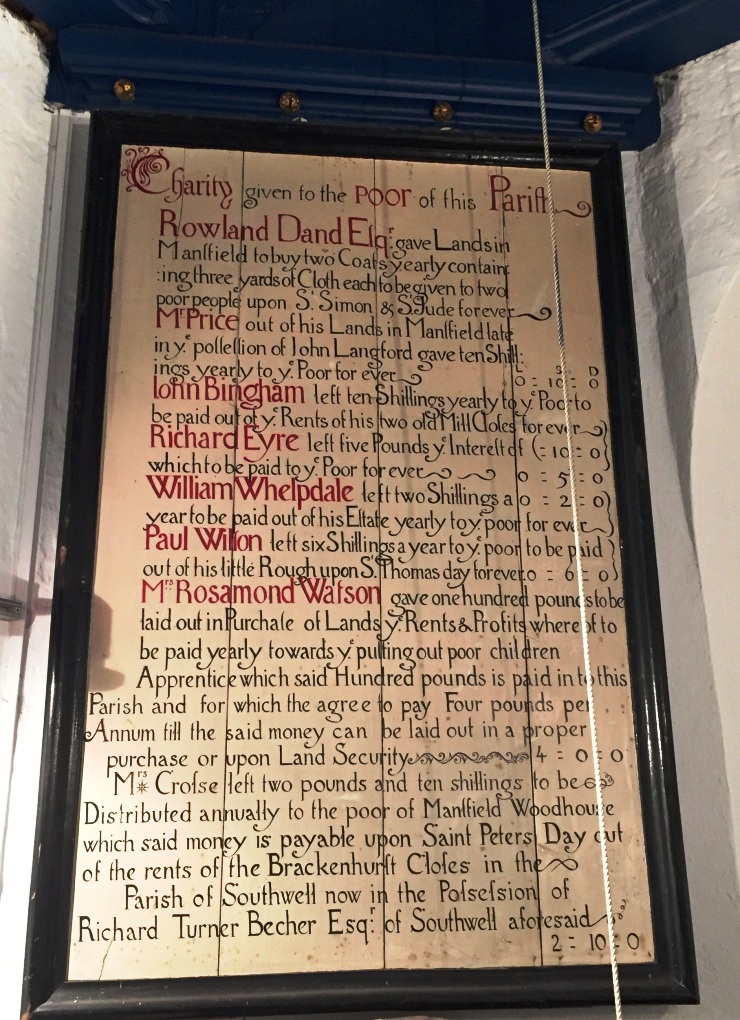 Charity given to the POOR of this Parish
Rowland Dand Esqr. gave Lands in
Manſfield to buy two Coats yearly contain:
:ing three yards of Cloth each to be given to two
poor people upon St. Simon & St. Jude for ever
Mr. Price out of his Lands in Manſfield late
in ye. poſſeſſion of John Langford gave ten Shill:
L S D
ings yearly to ye. Poor for ever 0 = 10 = 0
John Bingham left ten Shillings yearly to ye. Poor to
be paid out of ye. Rents of his two old Mill Cloſes for ever
Richard Eyre left five Pounds ye. Intereſt of (= 10 = 0
which to be paid to ye. Poor for ever 0 = 5 = 0
William Whelpdale left two Shillings a 0 = 2 = 0
year to be paid out of his Eſtate yearly to ye. poor for ever
Paul Wilſon left six Shillings a year to ye. poor to be paid
out of his little Rough upon St. Thomas day for ever. 0 = 6 = 0
Mrs. Rosamond Watson gave one hundred pounds to be
laid out in Purchaſe of Lands ye. Rents & Profits whereof to
be paid yearly towards ye. putting out poor children
Apprentice which said Hundred pounds is paid in to this
Parish and for which the agree to pay Four pounds per
Annum till the said money can be laid out in a proper
purchase or upon Land Security 4 = 0 = 0
Mrs Croſse left two pounds and ten shillings to be
Distributed annually to the poor of Manſfield Woodhouse
which said money is payable upon Saint Peters Day out
of the rents of the Brackenhurſt Cloſes in the
Parish of Southwell now in the Poſseſsion of
Richard Turner Becher Esqr. of Southwell aforesaid
2 = 10 = 0